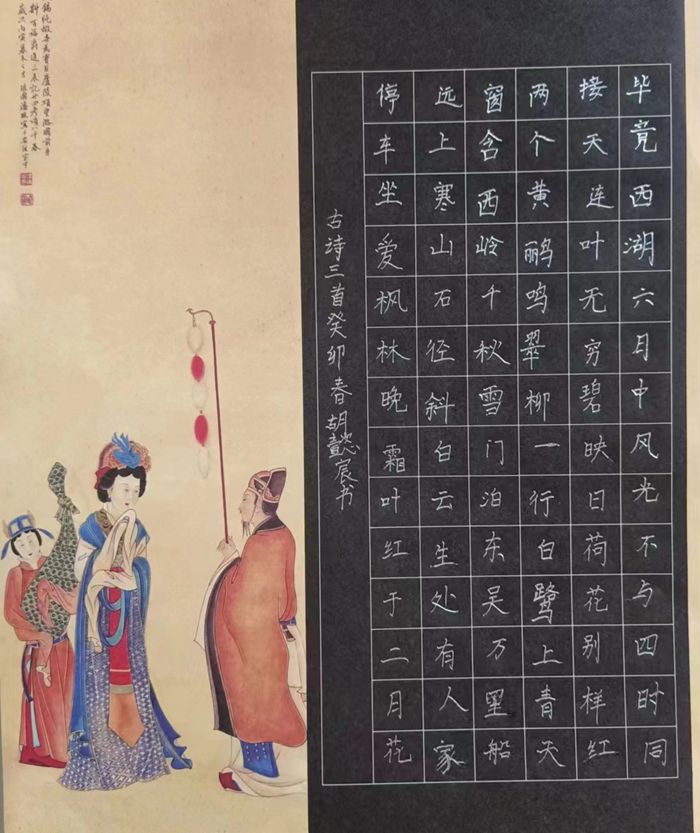 毕竟西湖六月中风光不与四时同
接天连叶无穷碧映日荷花别样红
两个黄鹂鸣翠柳一行白鹭上青天
窗含西岭千秋雪门泊东吴万里船
远上寒山石径斜白云生处有人家
停车坐爱枫林晚霜叶红于二月花
古诗三首癸卯春胡懿宸书
歲次丙寅暮冬之吉